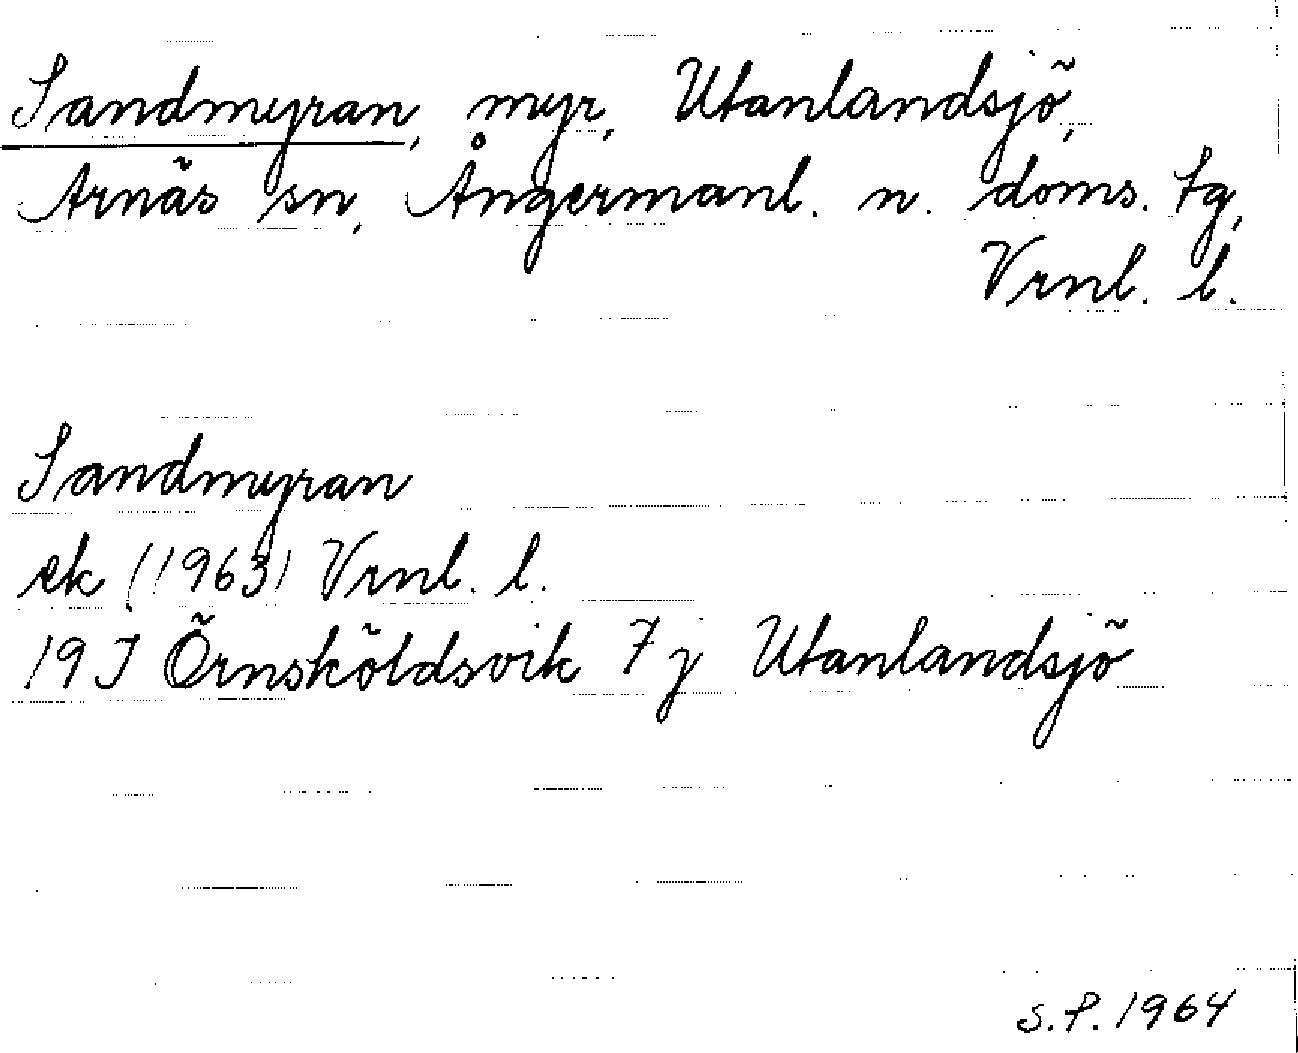 Sandmyran, myr, Utanlandsjö,
Arnäs sn, Ångermanl. n. doms. tg,
Vrnl. l.
Sandmyran
ek (1963) Vrnl. l.
19 J Örnsköldsvik 7 j Utanlandsjö
S.P. 1964